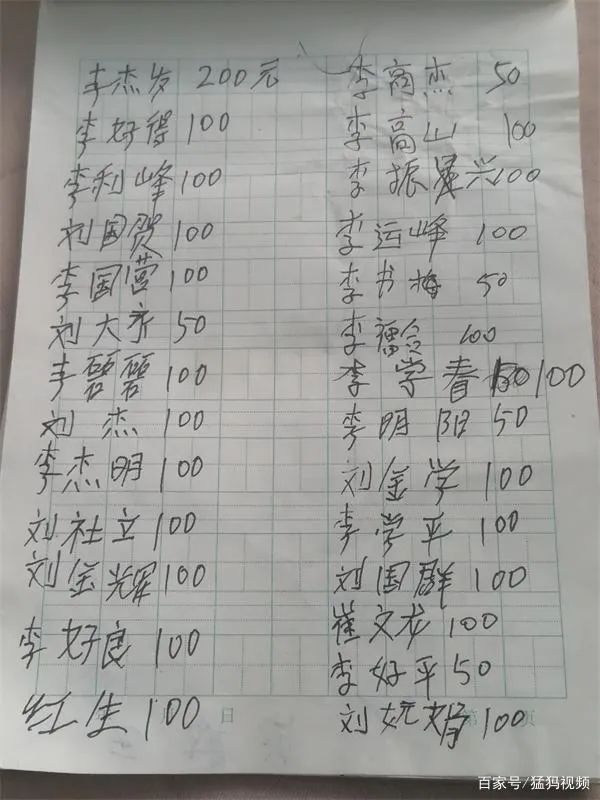 李杰发 200元
李好得 100
李利峰 100
刘国贺 100
李国营 100
刘大齐 50
李碧碧 100
刘杰 100
李杰明 100
刘社立 100
刘金辉 100
李好良 100
红生 100
李高杰 50
李高山 100
李振兴 100
李运峰 100
李书梅 50
李 100
李学春 100
李明阳 50
刘金学 100
李学平 100
刘国群 100
崔文龙 100
李好平 50
刘 100
日
百家号/猛犸视频